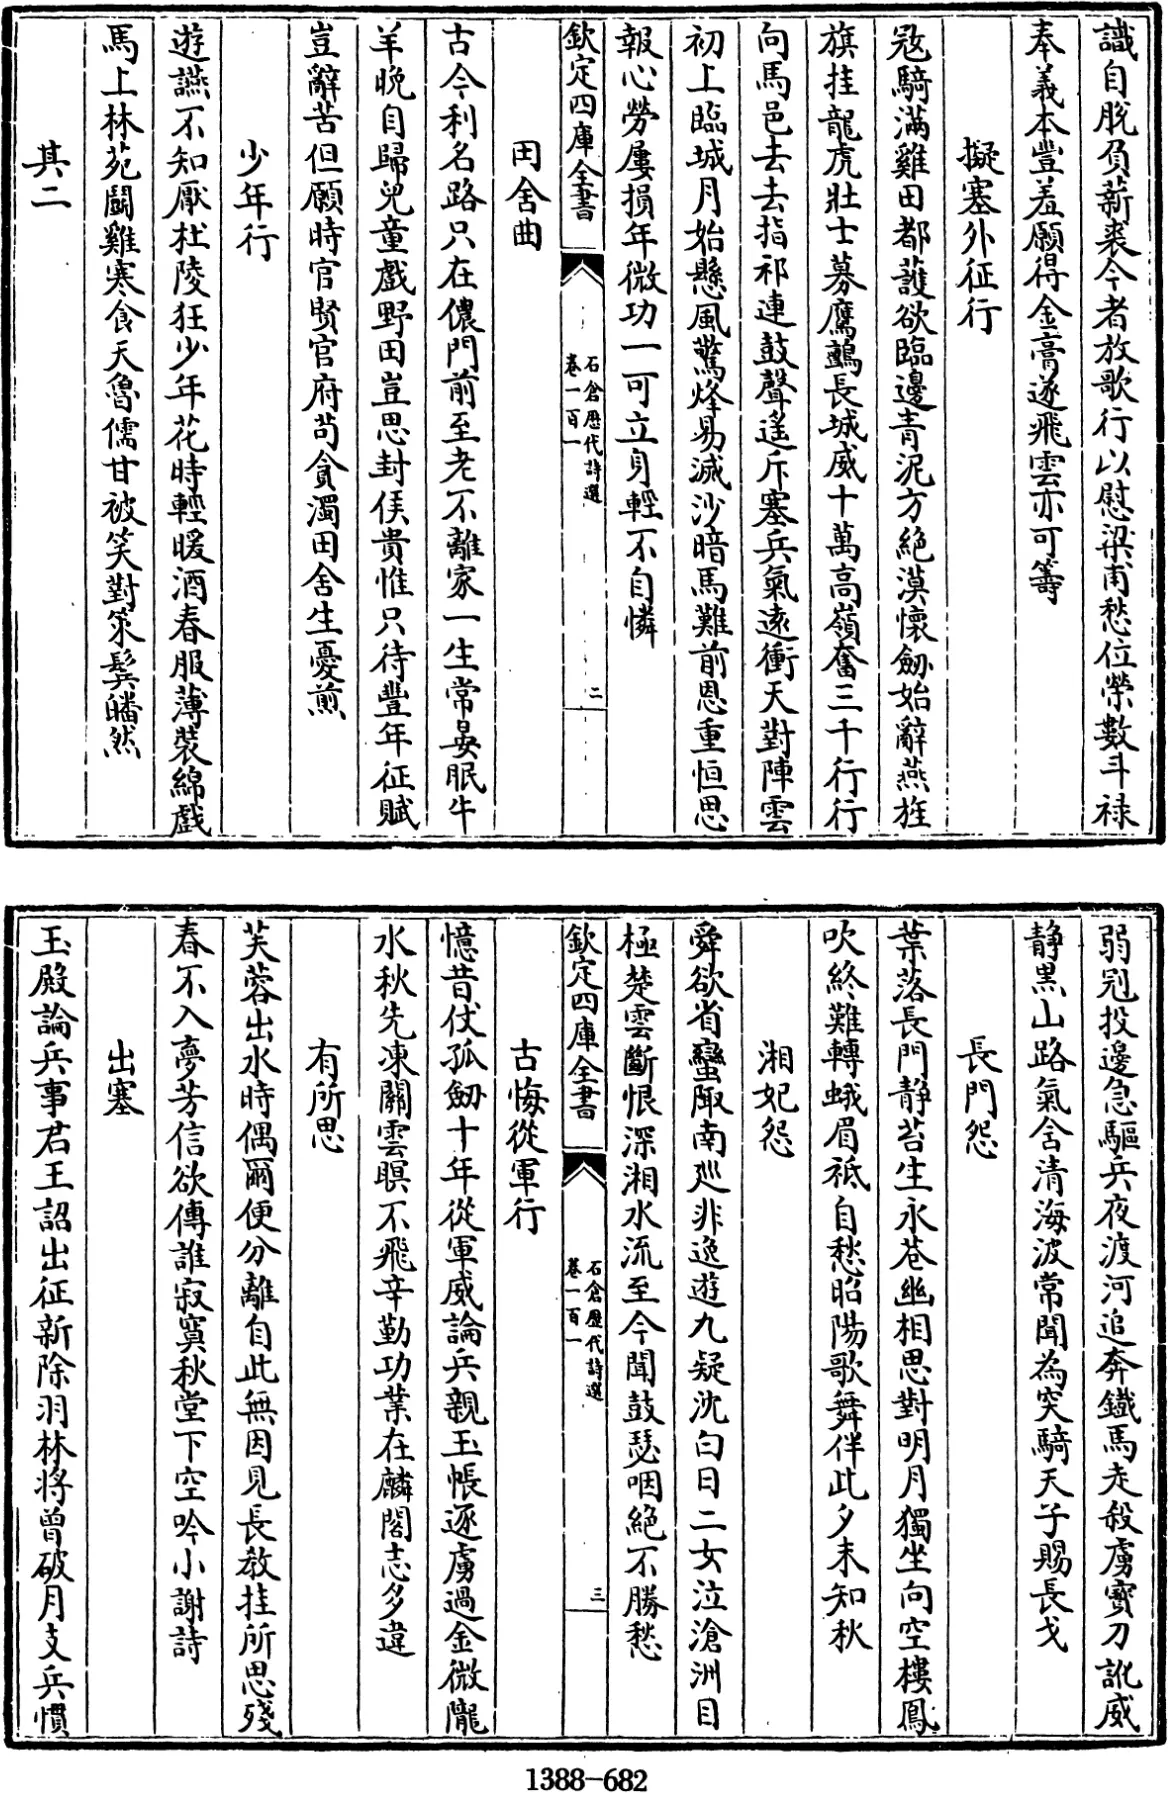 識自脱負薪裘今者放歌行以慰梁甫愁位榮數斗禄
奉義本豈羞願得金膏遂飛雲亦可籌
擬塞外征行
冦騎滿雞田都護欲臨邊青泥方絶漠懐劒始辭燕旌
旗挂龍虎壯士募鷹鸇長城威十萬高嶺奮三千行行
向馬邑去去指祁連鼓聲遙斥塞兵氣遠衝天對陣雲
初上臨城月始懸風驚烽易滅沙暗馬難前恩重恒思
報心勞屢損年微功一可立身輕不自憐
欽定四庫全書
石倉歴代詩選
卷一百一
二
田舍曲
古今利名路只在儂門前至老不離家一生常晏眠牛
羊晩自歸兒童戲野田豈思封侯貴惟只待豐年征賦
豈辭苦但願時官賢官府茍貪濁田舍生憂煎
少年行
遊讌不知厭杜陵狂少年花時輕暖酒春服薄裝綿戲
馬上林苑鬭雞寒食天魯儒甘被笑對策鬂皤然
其二
弱冠投邊急驅兵夜渡河追奔鐵馬走殺虜寳刀訛威
靜黒山路氣含清海波常聞為突騎天子賜長戈
長門怨
葉落長門靜苔生永巷幽相思對明月獨坐向空樓鳳
吹終難轉蛾眉祗自愁昭陽歌舞伴此夕未知秋
湘妃怨
舜欲省蠻陬南廵非逸遊九疑沈白日二女泣滄洲目
極楚雲斷恨深湘水流至今聞鼓瑟咽絶不勝愁
欽定四庫全書
石倉歴代詩選
卷一百一
三
古悔從軍行
憶昔仗孤劒十年從軍威論兵親玉帳逐虜過金微隴
水秋先凍關雲暝不飛辛勤功業在麟閣志多違
有所思
芙蓉出水時偶爾便分離自此無因見長教挂所思殘
春不入夢芳信欲傳誰寂寞秋堂下空吟小謝詩
出塞
玉殿論兵事君王詔出征新除羽林将曾破月支兵慣
1388-682